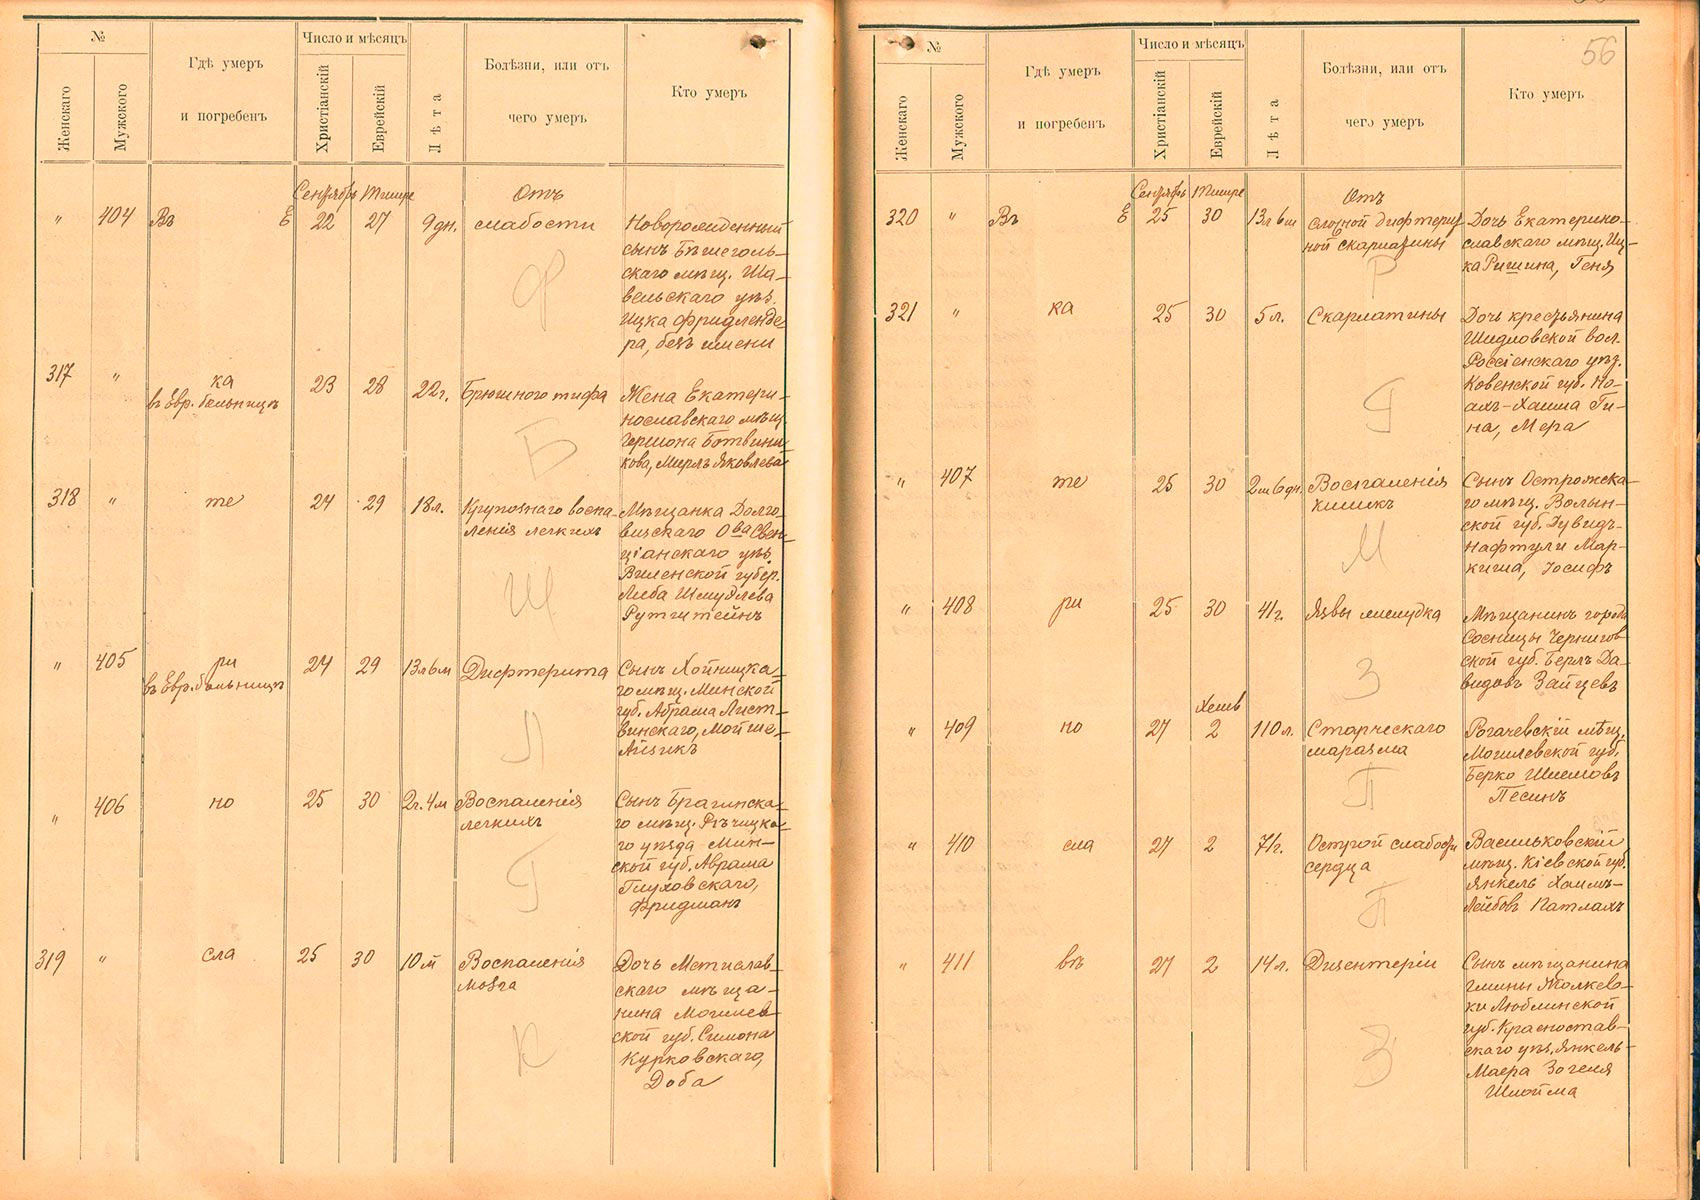 №
Число и мѣсяцъ
Женскаго
Мужского
Гдѣ умеръ
и погребенъ
Христіанскій
Еврейскій
Лѣта
Болѣзни, или отъ
чего умеръ
Кто умеръ
Сентябрь Тишре
Отъ
" 404 Въ Е 22 27 9 дн. слабости
Новорожденный
сынъ Бѣшеголь-
скаго мѣщ. Ша-
вельскаго уѣз.
Ицка Фридленде-
ра, безъ имени
Ф
317 " ка 23 28 22 г. Брюшного тифа
въ Евр. больницѣ
Жена Екатери-
нославскаго мѣщ.
Гершона Ботвини-
кова, Мирлъ Яковлева
Б
318 " те 24 29 18 л. Крупознаго воспа-
ленія легкихъ
Мѣщанка Долго-
вицскаго Ова Свен-
ціанскаго уѣз.
Виленской губер.
Либа Шмуйлева
Рутштейнъ
Щ
" 405 ри 24 29 13 л 6 м Дифтерита
въ Евр. больницѣ
Сынъ Хойницка-
го мѣщ. Минской
губ. Абрама Лист-
винскаго, Мойше-
Айзикъ
Л
" 406 но 25 30 2 г. 4 м Воспаленія
легкихъ
Сынъ Брагинска-
го мѣщ. Рѣчицка-
го уѣзда Мин-
ской губ. Аврама
Глуховскаго,
Фридманъ
Г
319 " сла 25 30 10 м Воспаленія
мозга
Дочь Мстислав-
скаго мѣща-
нина Могилев-
ской губ. Симона
Курковскаго,
Доба
К
56
№
Число и мѣсяцъ
Женскаго
Мужского
Гдѣ умеръ
и погребенъ
Христіанскій
Еврейскій
Лѣта
Болѣзни, или отъ
чего умеръ
Кто умеръ
Сентябрь Тишре
Отъ
320 " Въ Е 25 30 13 л 6 м
ной скарлатины
Дочь Екатерино-
славскаго мѣщ. Иц-
ка Ришина, Геня
Р
321 " ка 25 30 5 л. Скарлатины
Дочь крестьянина
Шидловской вол.
Россіенскаго уѣз.
Ковенской губ. Но-
ахъ-Хаима Ги-
на, Мера
Г
" 407 те 25 30 2 м 6 дн. Воспаленія
кишекъ
Сынъ Острожска-
го мѣщ. Волын-
ской губ. Дувидъ-
Нафтули Мар-
киша, Іосифъ
М
" 408 ри 25 30 41 г. Язвы желудка
Мѣщанинъ города
Сосницы Чернигов-
ской губ. Берлъ Да-
видовъ Зайцевъ
З
Хешв
" 409 но 27 2 110 л. Старческаго
маразма
Рогачевскій мѣщ.
Могилевской губ.
Берко Шлемовъ
Песинъ
П
" 410 сла 27 2 71 г. Острой слабости
сердца
Васильковскій
мѣщ. Кіевской губ.
Янкель Хаимъ-
Лейбовъ Патлахъ
П
" 411 въ 27 2 14 л. Дизентеріи
Сынъ мѣщанина
гмины Жолкев-
ки Люблинской
губ. Красностав-
скаго уѣз. Янкель-
Маера Зогеля
Шлойма
З